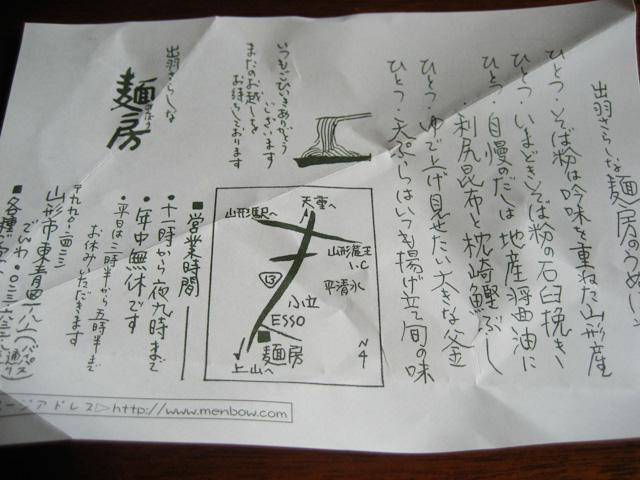 出羽さらしな 麺房のうめい
ひとつ・そば粉は吟味を重ねた山形産
ひとつ・いまどきそば粉の石臼挽き
ひとつ・自慢のだしは地産醤油に
利尻昆布と枕崎鰹ぶし
ひとつ・ゆで上げ見せたい大きな釜
ひとつ・天ぷらはいつも揚げ立て旬の味
いつもごひいきありがとう
ございます
またのお越しを
お待ちしております
出羽さらしな
麺房
天童へ
山形駅へ
山形蔵王
I.C
13
平清水
小立
ESSO
麺房
上山へ
N
4
■営業時間
・十一時から夜九時まで
・年中無休です
・平日は三時半から五時半まで
お休みいただきます
山形市東青田
でんわ・〇二三
■各種
ージアドレス▷http://www.menbow.com